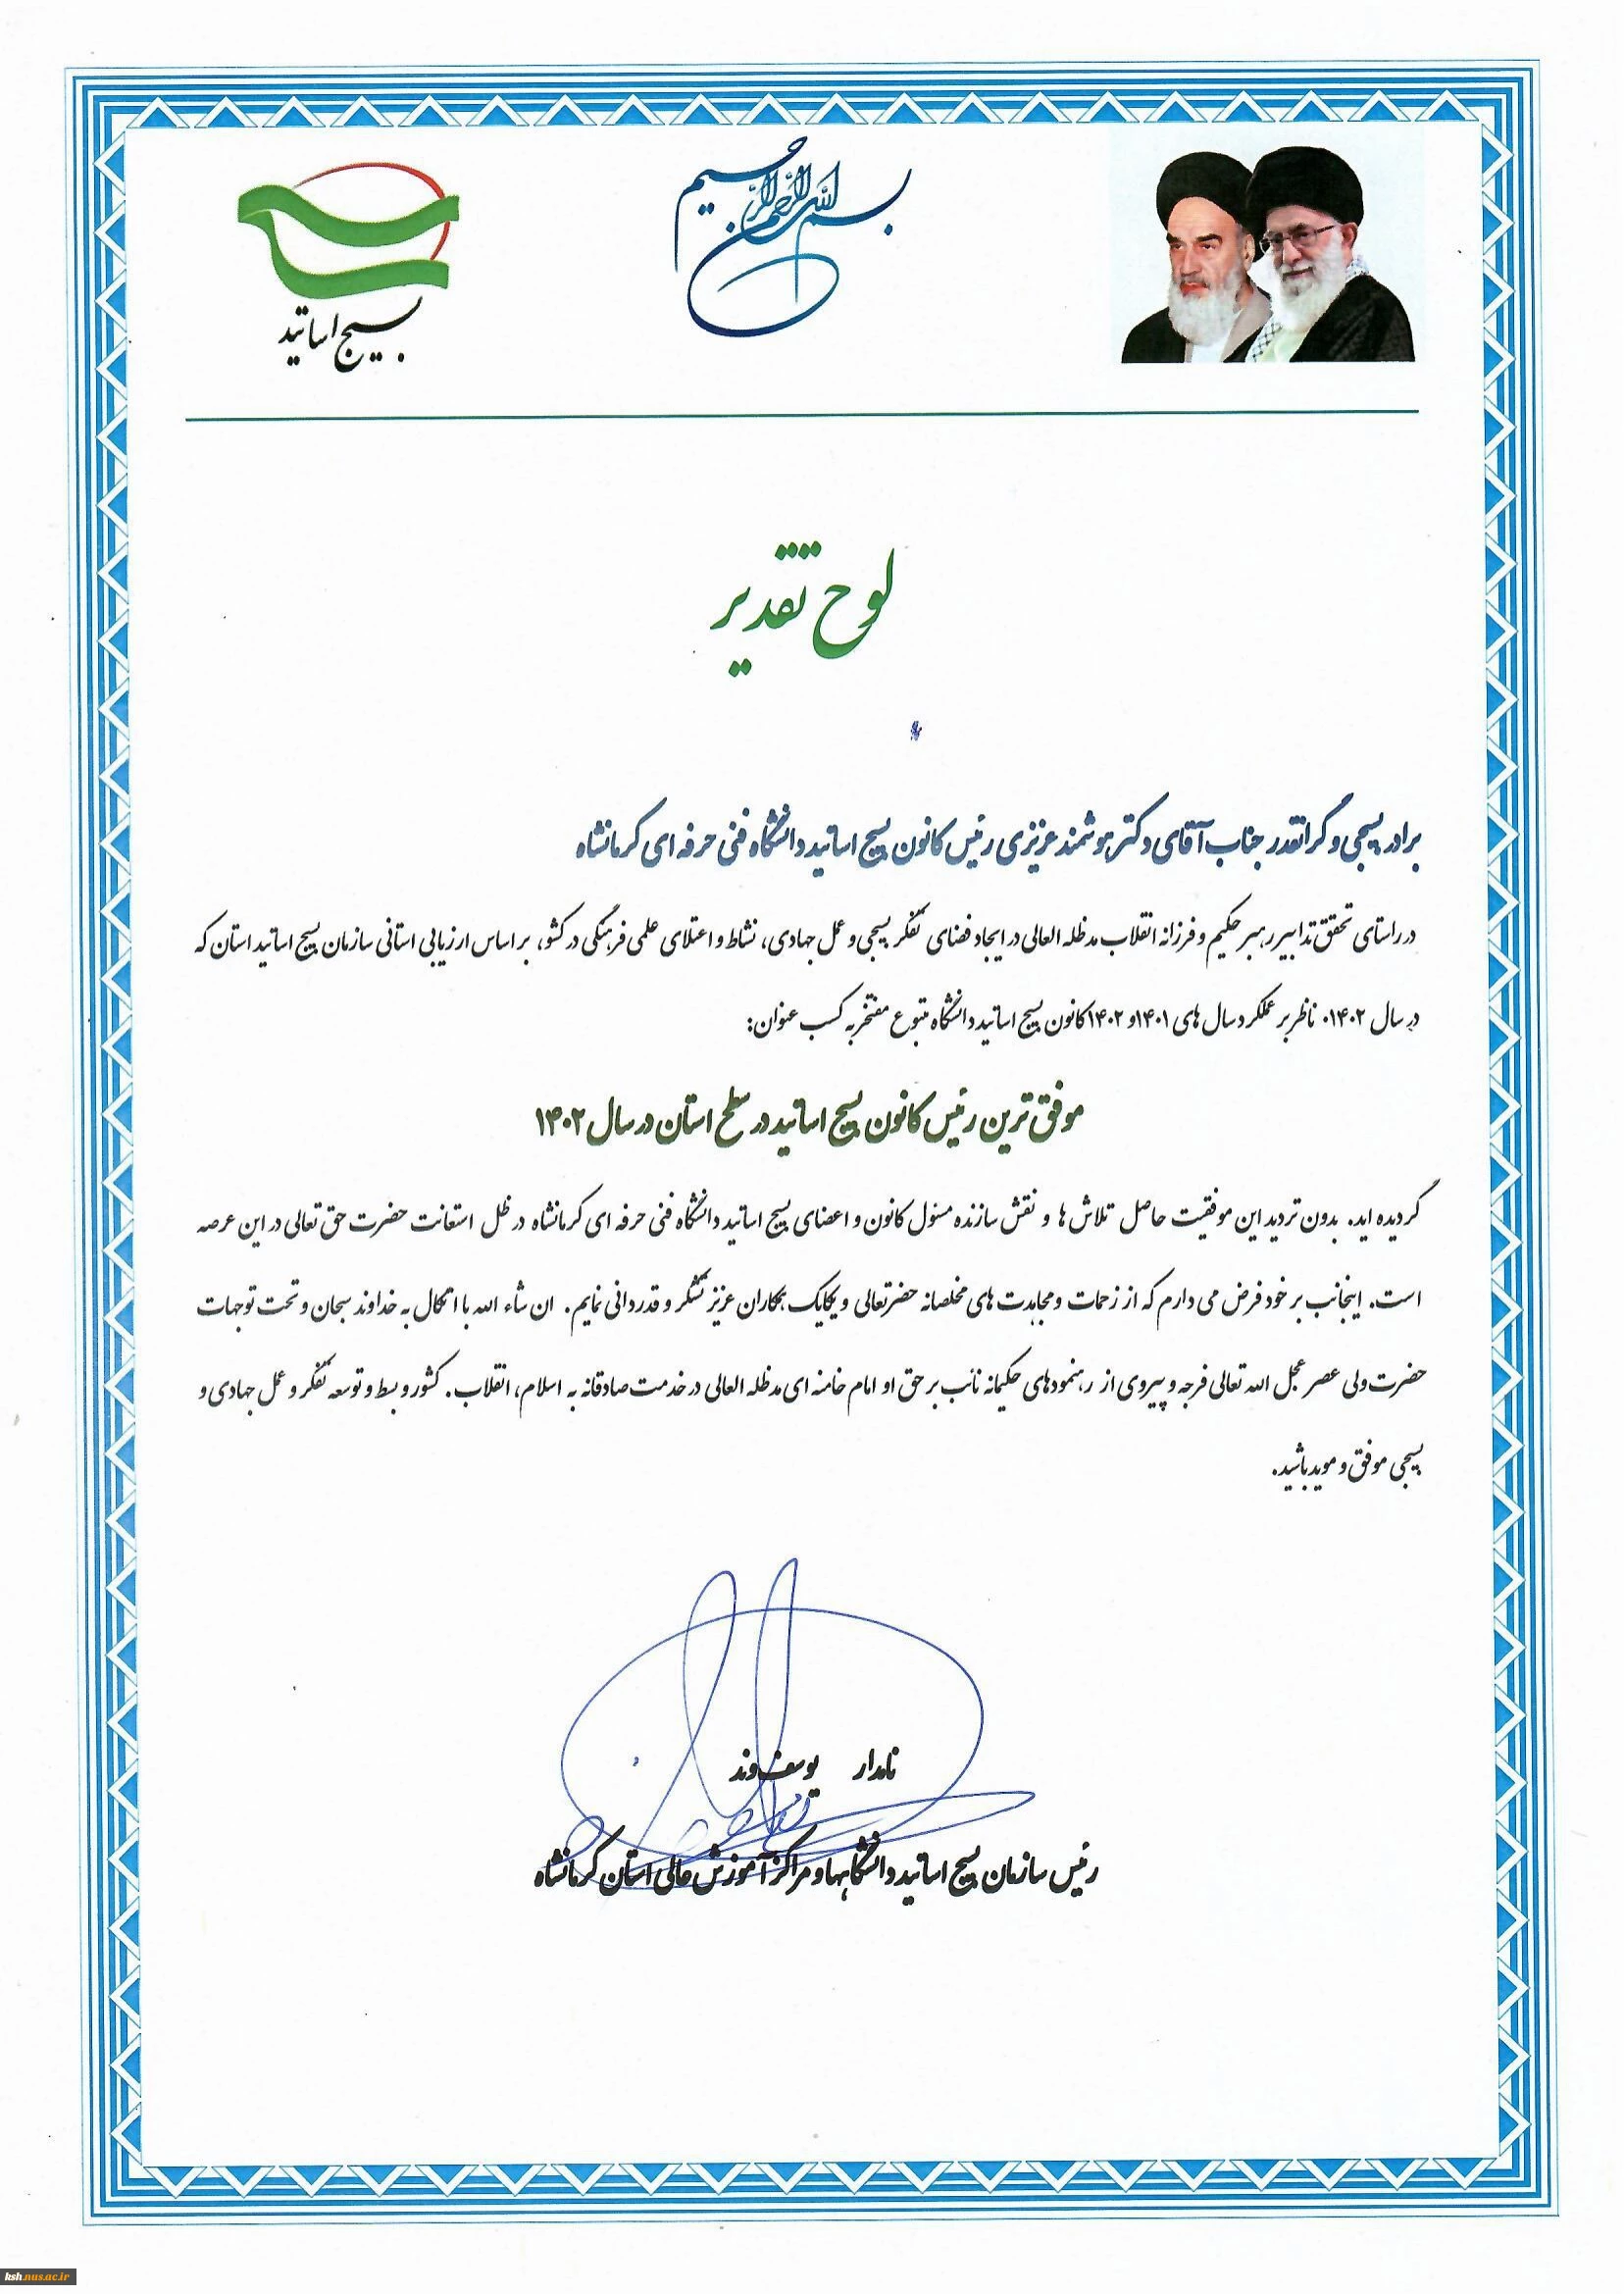 بسم الله الرحمن الرحیم
بسیج اساتید
لوح تقدیر
برادر بسیجی و گرانقدر جناب آقای دکتر هوشمند عزیزی رئیس کانون بسیج اساتید دانشگاه فنی حرفه ای کرمانشاه
در راستای تحقق تدابیر رهبر حکیم و فرزانه انقلاب مدظله العالی در ایجاد فضای تفکر بسیجی و عمل جهادی، نشاط و اعتلای علمی فرهنگی در کشور، بر اساس ارزیابی استانی سازمان بسیج اساتید استان که
در سال ۱۴۰۲، ناظر بر عملکرد سال های ۱۴۰۱و ۱۴۰۲ کانون بسیج اساتید دانشگاه متبوع مفتخر به کسب عنوان:
موفق ترین رئیس کانون بسیج اساتید در سطح استان در سال ۱۴۰۲
گردیده اید. بدون تردید این موفقیت حاصل تلاش ها و نقش سازنده مسئول کانون و اعضای بسیج اساتید دانشگاه فنی حرفه ای کرمانشاه در ظل استعانت حضرت حق تعالی در این عرصه
است. اینجانب بر خود فرض می دارم که از زحمات و مجاهدت های مخلصانه حضرتعالی و یکایک همکاران عزیز تشکر و قدردانی نمایم. ان شاء الله با اتکال به خداوند سبحان و تحت توجهات
حضرت ولی عصر عجل الله تعالی فرجه و پیروی از رهنمودهای حکیمانه نائب بر حق او امام خامنه ای مدظله العالی در خدمت صادقانه به اسلام، انقلاب. کشور و بسط و توسعه تفکر و عمل جهادی و
بسیجی موفق و موید باشید.
نامدار یوسف وند
رئیس سازمان بسیج اساتید دانشگاهها و مراکز آموزش عالی استان کرمانشاه
ksh.nus.ac.ir